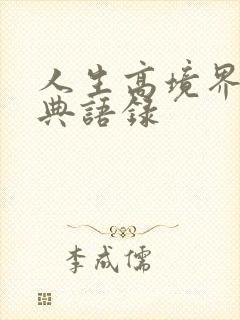 人生高境界
典語錄
李成儒